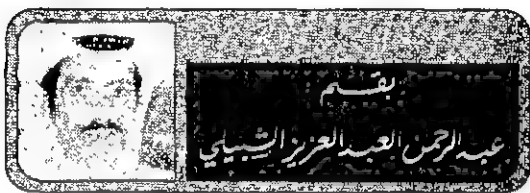 بقلم
عبد الرحمن العبد العزيز الشبيلي